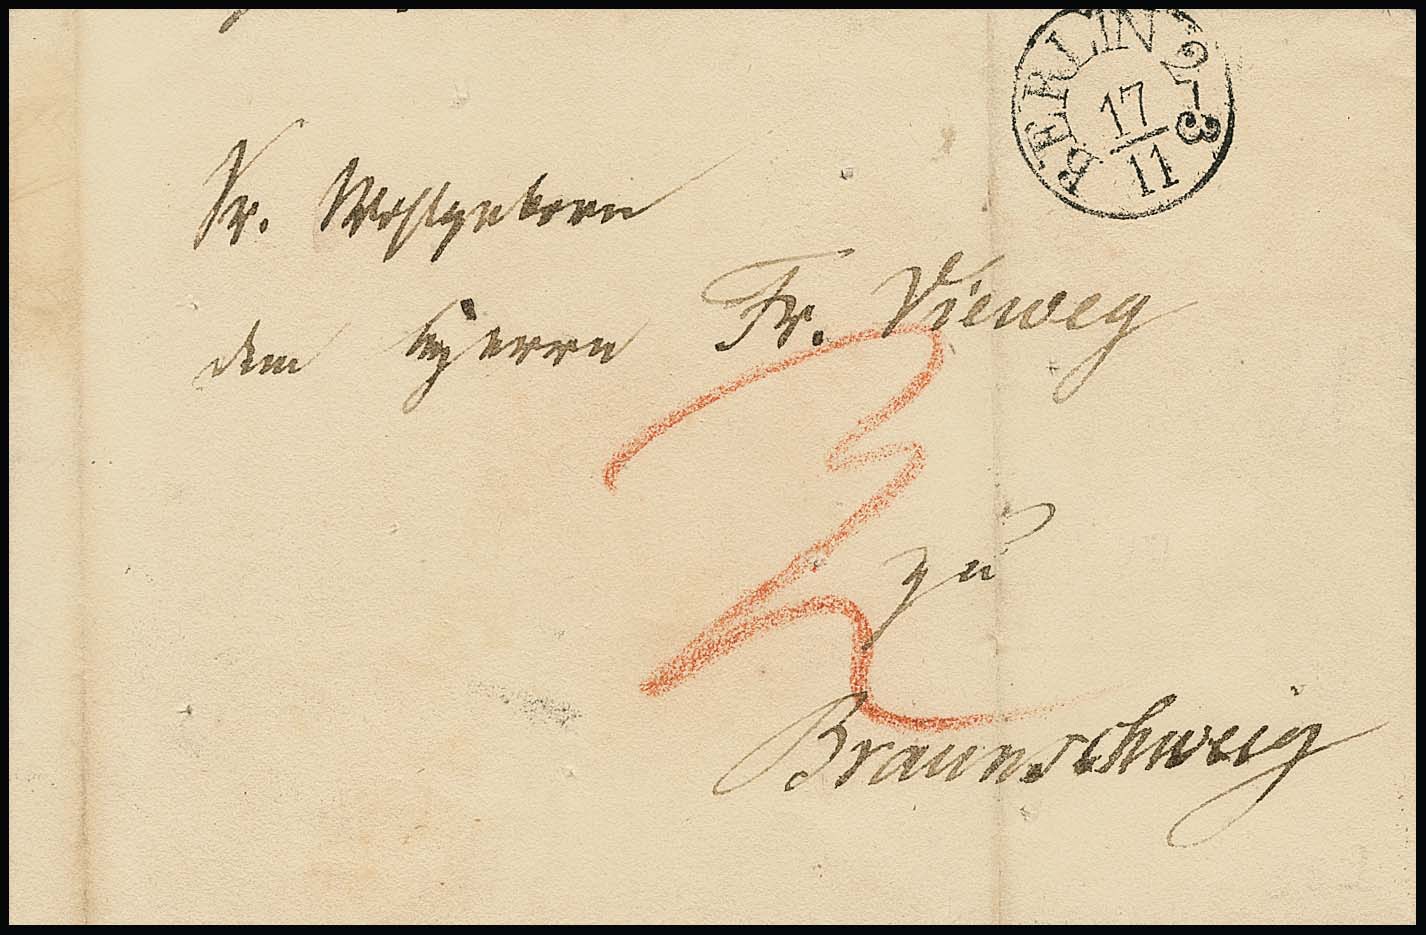 BERLIN 2-3
17
11
Sr. Wohlgeborn
dem Herrn Fr. Vieweg
3
zu
Braunschweig